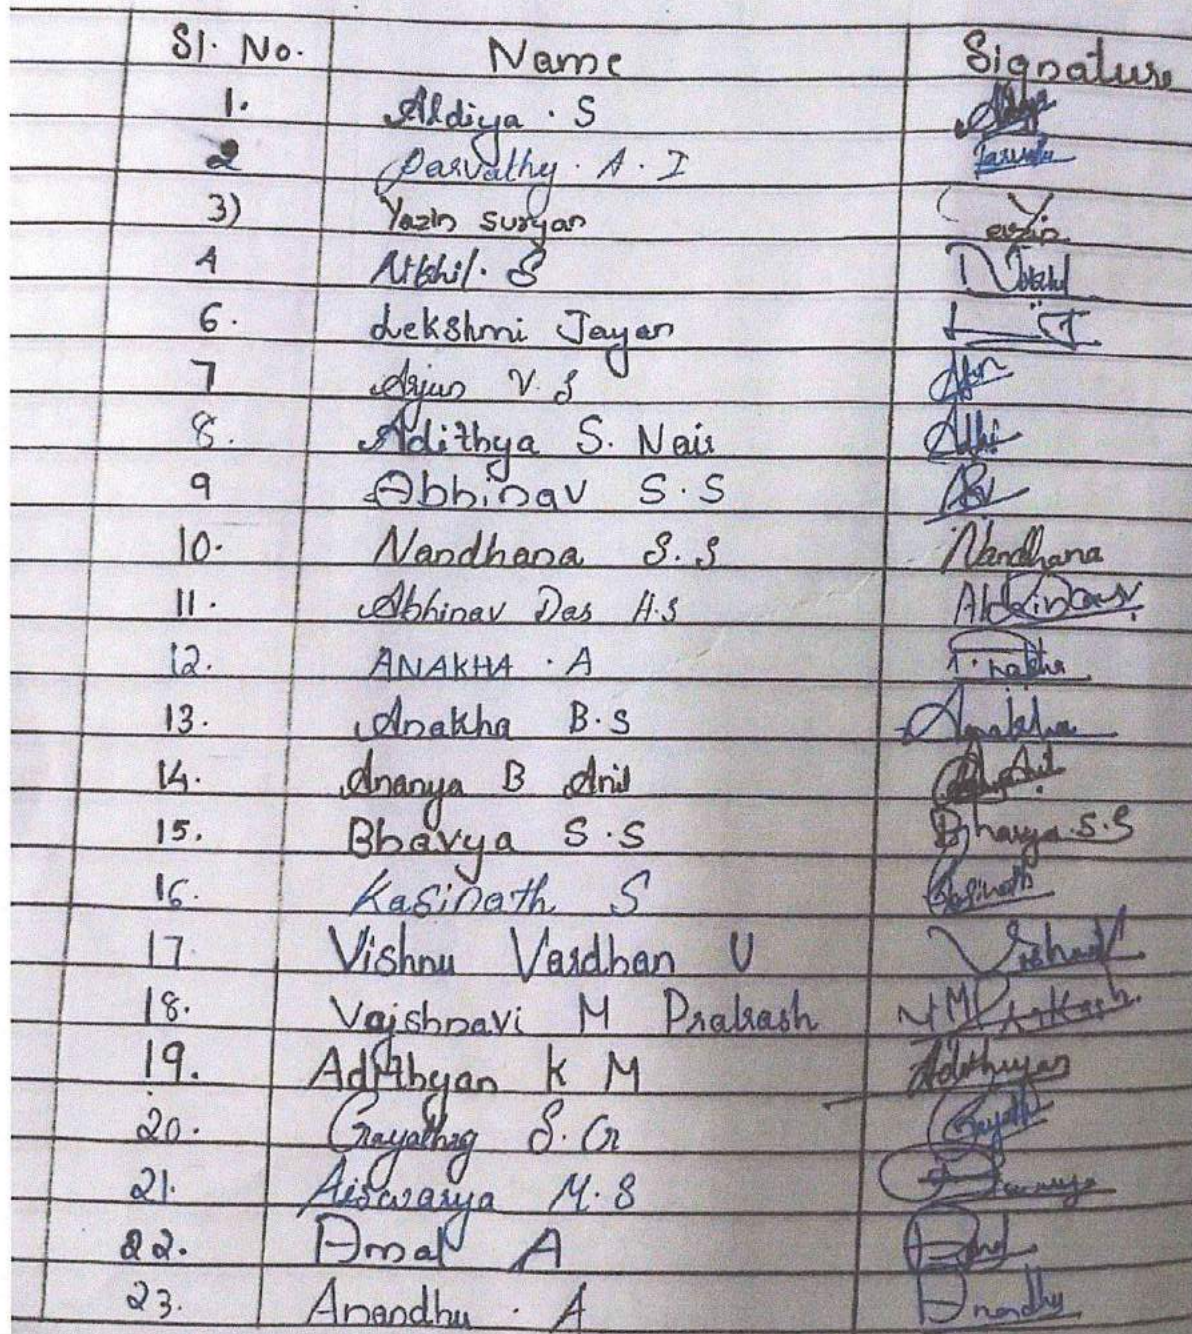 Sl. No. Name Signature
1. Aldiya . S
2 Parvathy . A . I
3) Yazin suryan
4 Nikhil . S
6. Lekshmi Jayan
7 Arjun V. S
8. Adithya S. Nair Adhi
9 Abhinav S . S
10. Nandhana S. S Nandhana
11. Abhinav Das H.S
12. ANAKHA . A
13. Anakha B . S Anakha
14. Ananya B Anil
15. Bhavya S . S Bhavya . S . S
16. Kasinath S Kasinath
17 Vishnu Vardhan V
18. Vaishnavi M Prakash
19. Adithyan K M Adithyan
20. Gayathry S. G
21. Aiswarya M . S
22. Amal A
23. Anandhu . A Anandhu